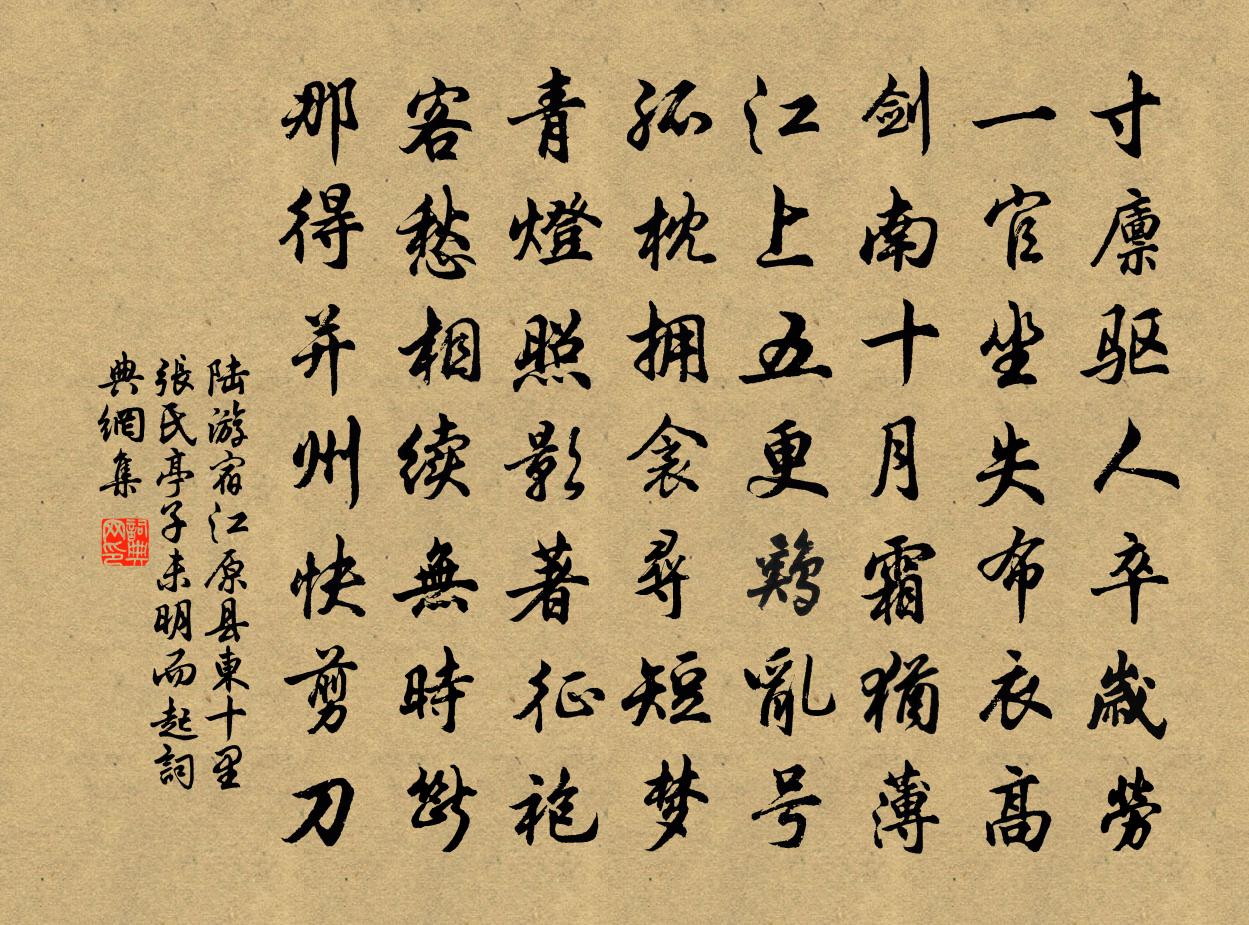 寸廪驱人卒歲勞
一官坐失布衣高
剑南十月霜猶薄
江上五更鷄亂号
孤枕拥衾尋短梦
青燈照影著征袍
客愁相续無時斷
那得并州快剪刀
陆游宿江原县東十里
張氏亭子未明而起詞
典網集
詞典
网印